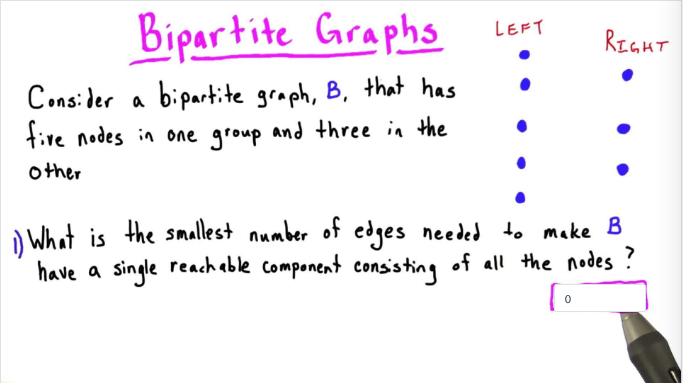 Bipartite Graphs
LEFT
RIGHT
Consider a bipartite graph, B, that has
five nodes in one group and three in the
other
1) What is the smallest number of edges needed to make B
have a single reachable component consisting of all the nodes?
0